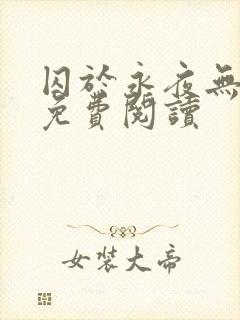 囚於永夜無
免費閱讀
女裝大帝